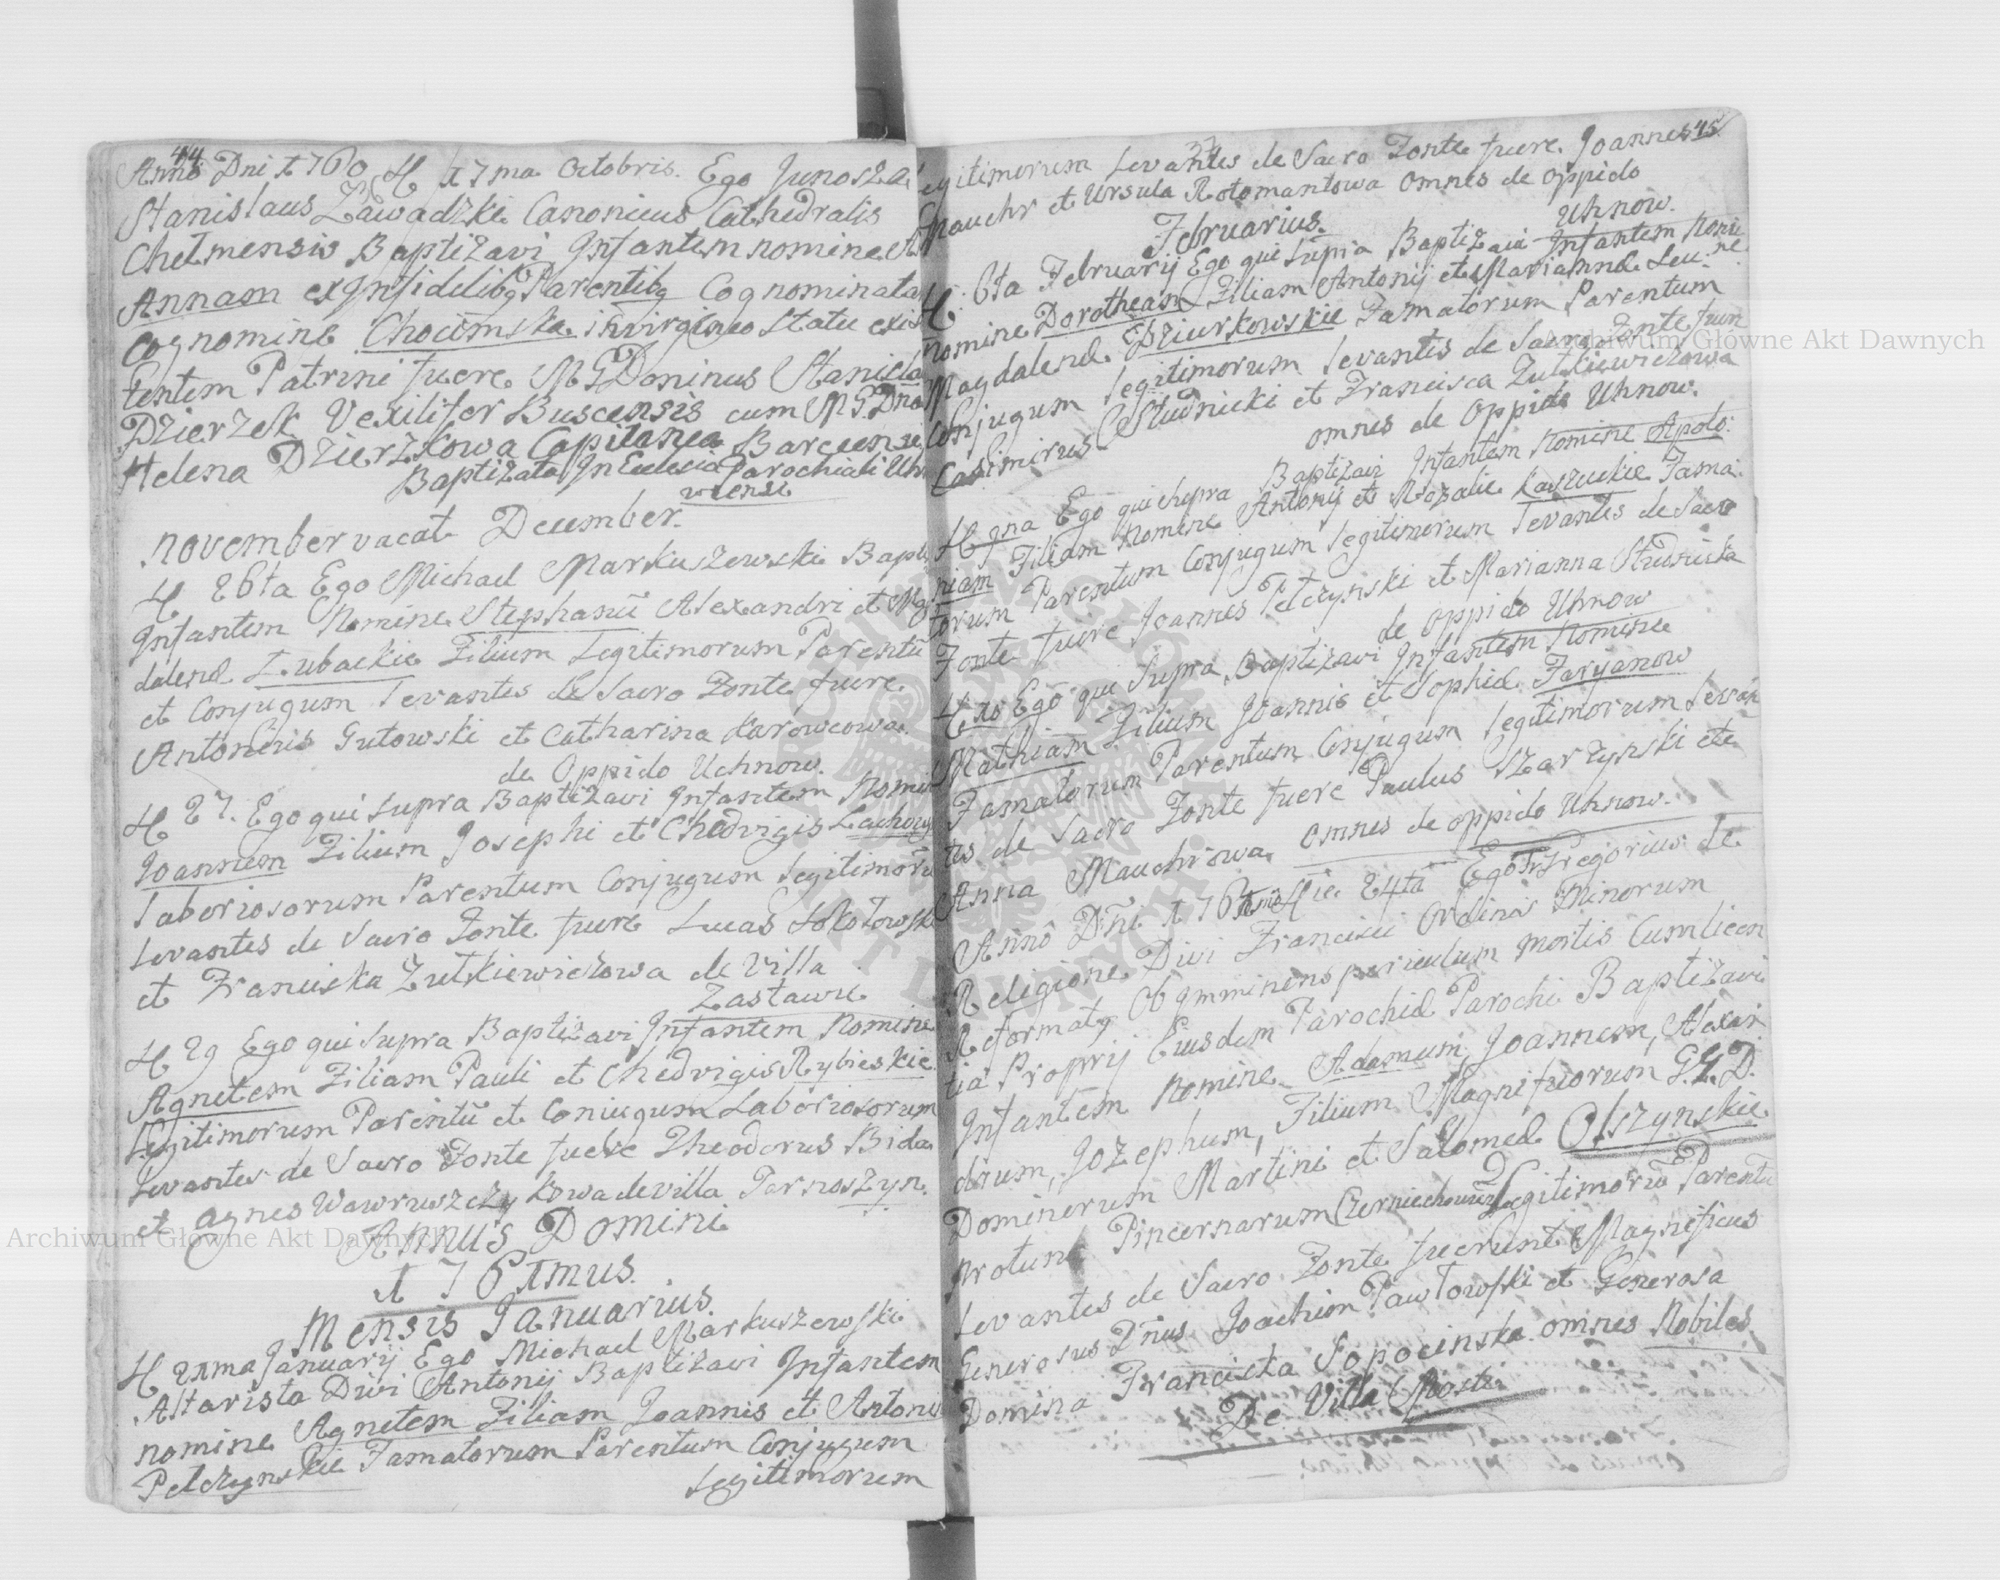 44
Anno Dni 1760 H 17ma Octobris. Ego Junosza
Stanislaus Zawadzki Canonicus Cathedralis
Chelmensis Baptizavi Infantem nomine
Annam ex Infidelibq Parentibq Cognominata
Cognomine Chocimska in virgineo statu exis
tentem Patrini fuere M G Dominus Stanisla
Dzierzek Vexilifer Buscensis cum M G Dna
Helena Dzierzkowa Capitanea
Baptizata In Ecclecia Parochiali Uhno
viensi
November vacat December.
H 26ta Ego Michael Markuszewski Bapti
Infantem Nomine Stephanū Alexandri et Mag
dalenæ Lubackie Filium Legitimorum Parentū
et Conjugum Levantes de Sacro Fonte fuere
Antonius Gutowski et Catharina Karowcowa
de Oppido Uchnow.
H 27. Ego qui supra Baptizavi Infantem Nomin
Joannem Filium Josephi et Chedvigis
Laboriosorum Parentum Conjugum Legitimorū
Levantes de Sacro Fonte fuere Lucas Sokołowsk
et Franciska Zutkiewiczowa de Villa
Zastawie
H 29 Ego qui supra Baptizavi Infantem Nomine
Agnetem Filiam Pauli et Chedvigis Rybieskie
Legitimorum Parentū et Coniugum Laboriosorum
Levantes de Sacro Fonte fuere Theodorus Bida
et Agnes Wawruszczykowa de villa Tarnoszyn.
Annus Domini
1761mus.
Mensis Januarius.
H 21ma Januarij Ego Michael Markuszewski
Altarista Divi Antonij Baptizavi Infantem
nomine Agnetem Filiam Joannis et Antoni
Pelczynskie Famatorum Parentum Conjugum
Legitimorum
45
Legitimorum Levantes de Sacro Fonte fuere Joannes
Mauchr et Ursula Rotomantowa Omnes de Oppido
Uhnow.
Februarius.
H. 6ta Februarij Ego qui supra Baptizavi Infantem Nomi
ne
nomine Dorotheam Filiam Antonij et Mariannæ Leu
Magdalenæ Dziurkowskie Famatorum Parentum
Conjugum Legitimorum Levantes de Sacro Fonte fuere
Casimirus Studnicki et Francisca Zutkiewiczowa
omnes de Oppido Uhnow.
H 9na Ego qui supra Baptizavi Infantem Nomine Apolo
niam Filiam Nomine Antonij et Rozalie Kaszuckie Fama
torum Parentum Conjugum Legitimorum Levantes de Sacro
Fonte fuere Joannes Petczynski et Marianna Studnicka
de Oppido Uhnow
H Ego qui Supra Baptizavi Infantem Nomine
Mathiam Filium Joannis et Sophiæ Faryanow
Famatorum Parentum Conjugum Legitimorum Levan
tes de Sacro Fonte fuere Paulus Szarzynski et
Anna Mauchrowa omnes de Oppido Uhnow.
Anno Dñi 1761mo Die 24ta Ego Fr Gregorius de
Religione Divi Francisci Ordinis Minorum
Reformatq Ob Imminens periculum mortis Cum licen
tia Proprij Eiusdem Parochiæ Parochi Baptizavi
Infantem Nomine Adamum, Joannem, Alexan
drum, Jozephum, Filium Magnificorum G.G.D.
Dominorum Martini et Salomeæ Olszynskie
protunc Pincernarum Legitimorū Parentū
Levantes de Sacro Fonte fuerunt Magnificus
Generosus Dñus Joachim Pawłowski et Generosa
Domina Franciska Sopocinska omnes Nobiles
De Villa Mosti
Archiwum Główne Akt Dawnych
Archiwum Główne Akt Dawnych
ARCHIWUM GŁÓWNE AKT DAWNYCH